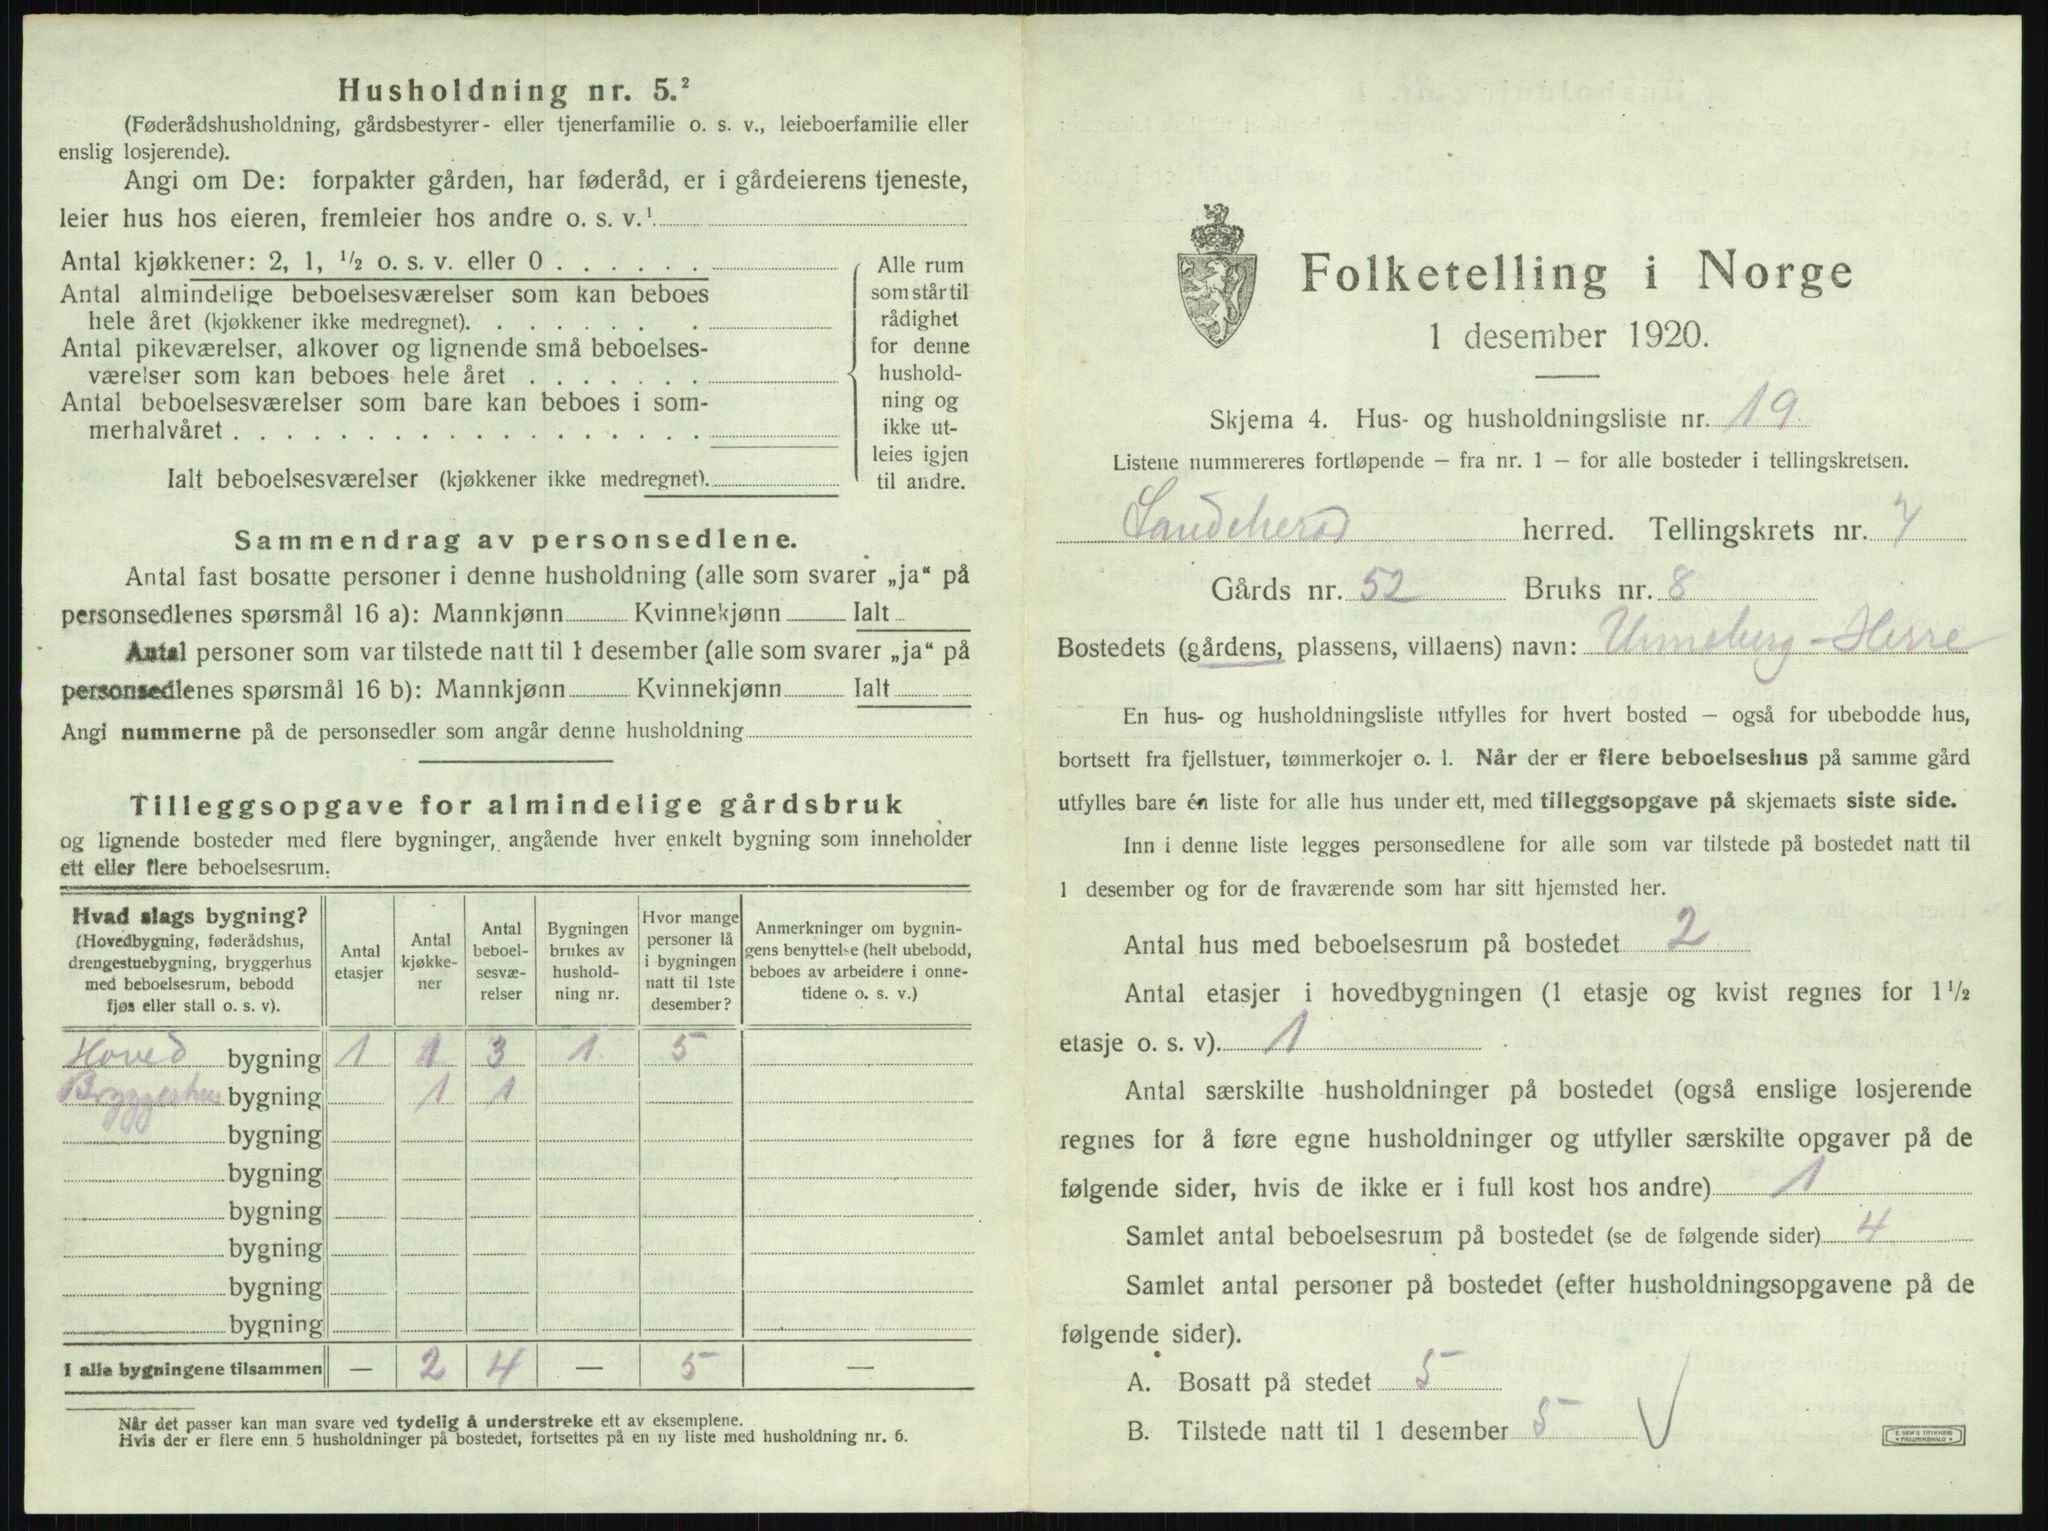 Husholdning nr. 5.²
(Føderådshusholdning, gårdsbestyrer- eller tjenerfamilie o. s. v., leieboerfamilie eller
enslig losjerende).
Angi om De: forpakter gården, har føderåd, er i gårdeierens tjeneste,
leier hus hos eieren, fremleier hos andre o. s. v.¹
Antal kjøkkener: 2, 1, ½ o. s. v. eller 0 . . . . . .
Antal almindelige beboelsesværelser som kan beboes
hele året (kjøkkener ikke medregnet). . . . . . . .
Antal pikeværelser, alkover og lignende små beboelses-
værelser som kan beboes hele året . . . . . . .
Antal beboelsesværelser som bare kan beboes i som-
merhalvåret . . . . . . . . . . . . . . . . . .
Ialt beboelsesværelser (kjøkkener ikke medregnet).
Alle rum
som står til
rådighet
for denne
hushold-
ning og
ikke ut-
leies igjen
til andre.
Sammendrag av personsedlene.
Antal fast bosatte personer i denne husholdning (alle som svarer „ja“ på
personsedlenes spørsmål 16 a): Mannkjønn Kvinnekjønn Ialt
Antal personer som var tilstede natt til 1 desember (alle som svarer „ja“ på
personsedlenes spørsmål 16 b): Mannkjønn Kvinnekjønn Ialt
Angi nummerne på de personsedler som angår denne husholdning
Tilleggsopgave for almindelige gårdsbruk
og lignende bosteder med flere bygninger, angående hver enkelt bygning som inneholder
ett eller flere beboelsesrum.
Hvad slags bygning?
(Hovedbygning, føderådshus,
drengestuebygning, bryggerhus
med beboelsesrum, bebodd
fjøs eller stall o. s. v).
Antal
etasjer
Antal
kjøkke-
ner
Antal
beboel-
sesvæ-
relser
Bygningen
brukes av
hushold-
ning nr.
Hvor mange
personer lå
i bygningen
natt til 1ste
desember?
Anmerkninger om bygnin-
gens benyttelse (helt ubebodd,
beboes av arbeidere i onne-
tidene o. s. v.)
Hoved bygning 1 1 3 1 5
Bryggerhus bygning 1 1
bygning
bygning
bygning
bygning
bygning
bygning
I alle bygningene tilsammen — 2 4 — 5 —
Når det passer kan man svare ved tydelig å understreke ett av eksemplene.
Hvis der er flere enn 5 husholdninger på bostedet, fortsettes på en ny liste med husholdning nr. 6.
Folketelling i Norge
1 desember 1920.
Skjema 4. Hus- og husholdningsliste nr. 19
Listene nummereres fortløpende – fra nr. 1 – for alle bosteder i tellingskretsen.
Sandeherad herred. Tellingskrets nr. 7
Gårds nr. 52 Bruks nr. 8
Bostedets (gårdens, plassens, villaens) navn: Unneberg - Herre
En hus- og husholdningsliste utfylles for hvert bosted – også for ubebodde hus,
bortsett fra fjellstuer, tømmerkojer o. l. Når der er flere beboelseshus på samme gård
utfylles bare én liste for alle hus under ett, med tilleggsopgave på skjemaets siste side.
Inn i denne liste legges personsedlene for alle som var tilstede på bostedet natt til
1 desember og for de fraværende som har sitt hjemsted her.
Antal hus med beboelsesrum på bostedet 2
Antal etasjer i hovedbygningen (1 etasje og kvist regnes for 1½
etasje o. s. v). 1
Antal særskilte husholdninger på bostedet (også enslige losjerende
regnes for å føre egne husholdninger og utfyller særskilte opgaver på de
følgende sider, hvis de ikke er i full kost hos andre) 1
Samlet antal beboelsesrum på bostedet (se de følgende sider) 4
Samlet antal personer på bostedet (efter husholdningsopgavene på de
følgende sider).
A. Bosatt på stedet 5
B. Tilstede natt til 1 desember 5
E. SEM'S TRYKKERI
FREDRIKSHALD